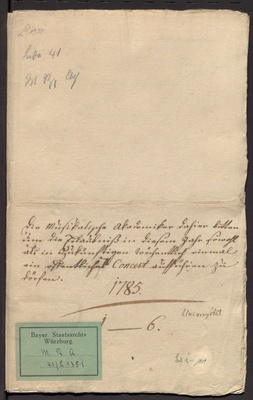 Lade 41
Die Musikalische Akademiker dahier bitten
um die Erlaubniß in diesem Jahr sowohl
als in zukünftigen wochentlich einmal
ein öffentliches Concert aufführen zu
dörfen.
1785.
1 — 6.
Bayer. Staatsarchiv
Würzburg
M. R. A